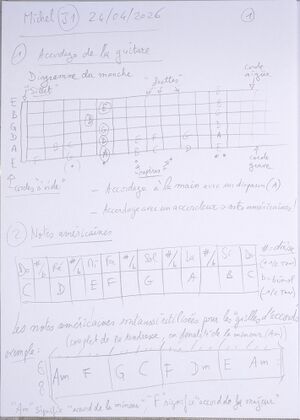 Michel J1 24/04/2026 1
1 Accordage de la guitare
Diagramme du manche
"Sillet" "frettes" corde aigüe
E
B
G
D
A
E
"cordes à vide" "repères" corde grave
- Accordage à la main avec un diapason (A)
- Accordage avec un accordeur → notes américaines !
2 Notes américaines
Do #/b Ré #/b Mi Fa #/b Sol #/b La #/b Si Do
C D E F G A B C
#=dièse (+1/2 ton)
b=bémol (-1/2 ton)
Les notes américaines sont aussi utilisées pour les "grilles d'accords"
exemple: (couplet de la tendresse, en tonalité de la mineur (Am))
Am F G C F Dm E Am
"Am" signifie "accord de la mineur" "F" signifie "accord de fa majeur"